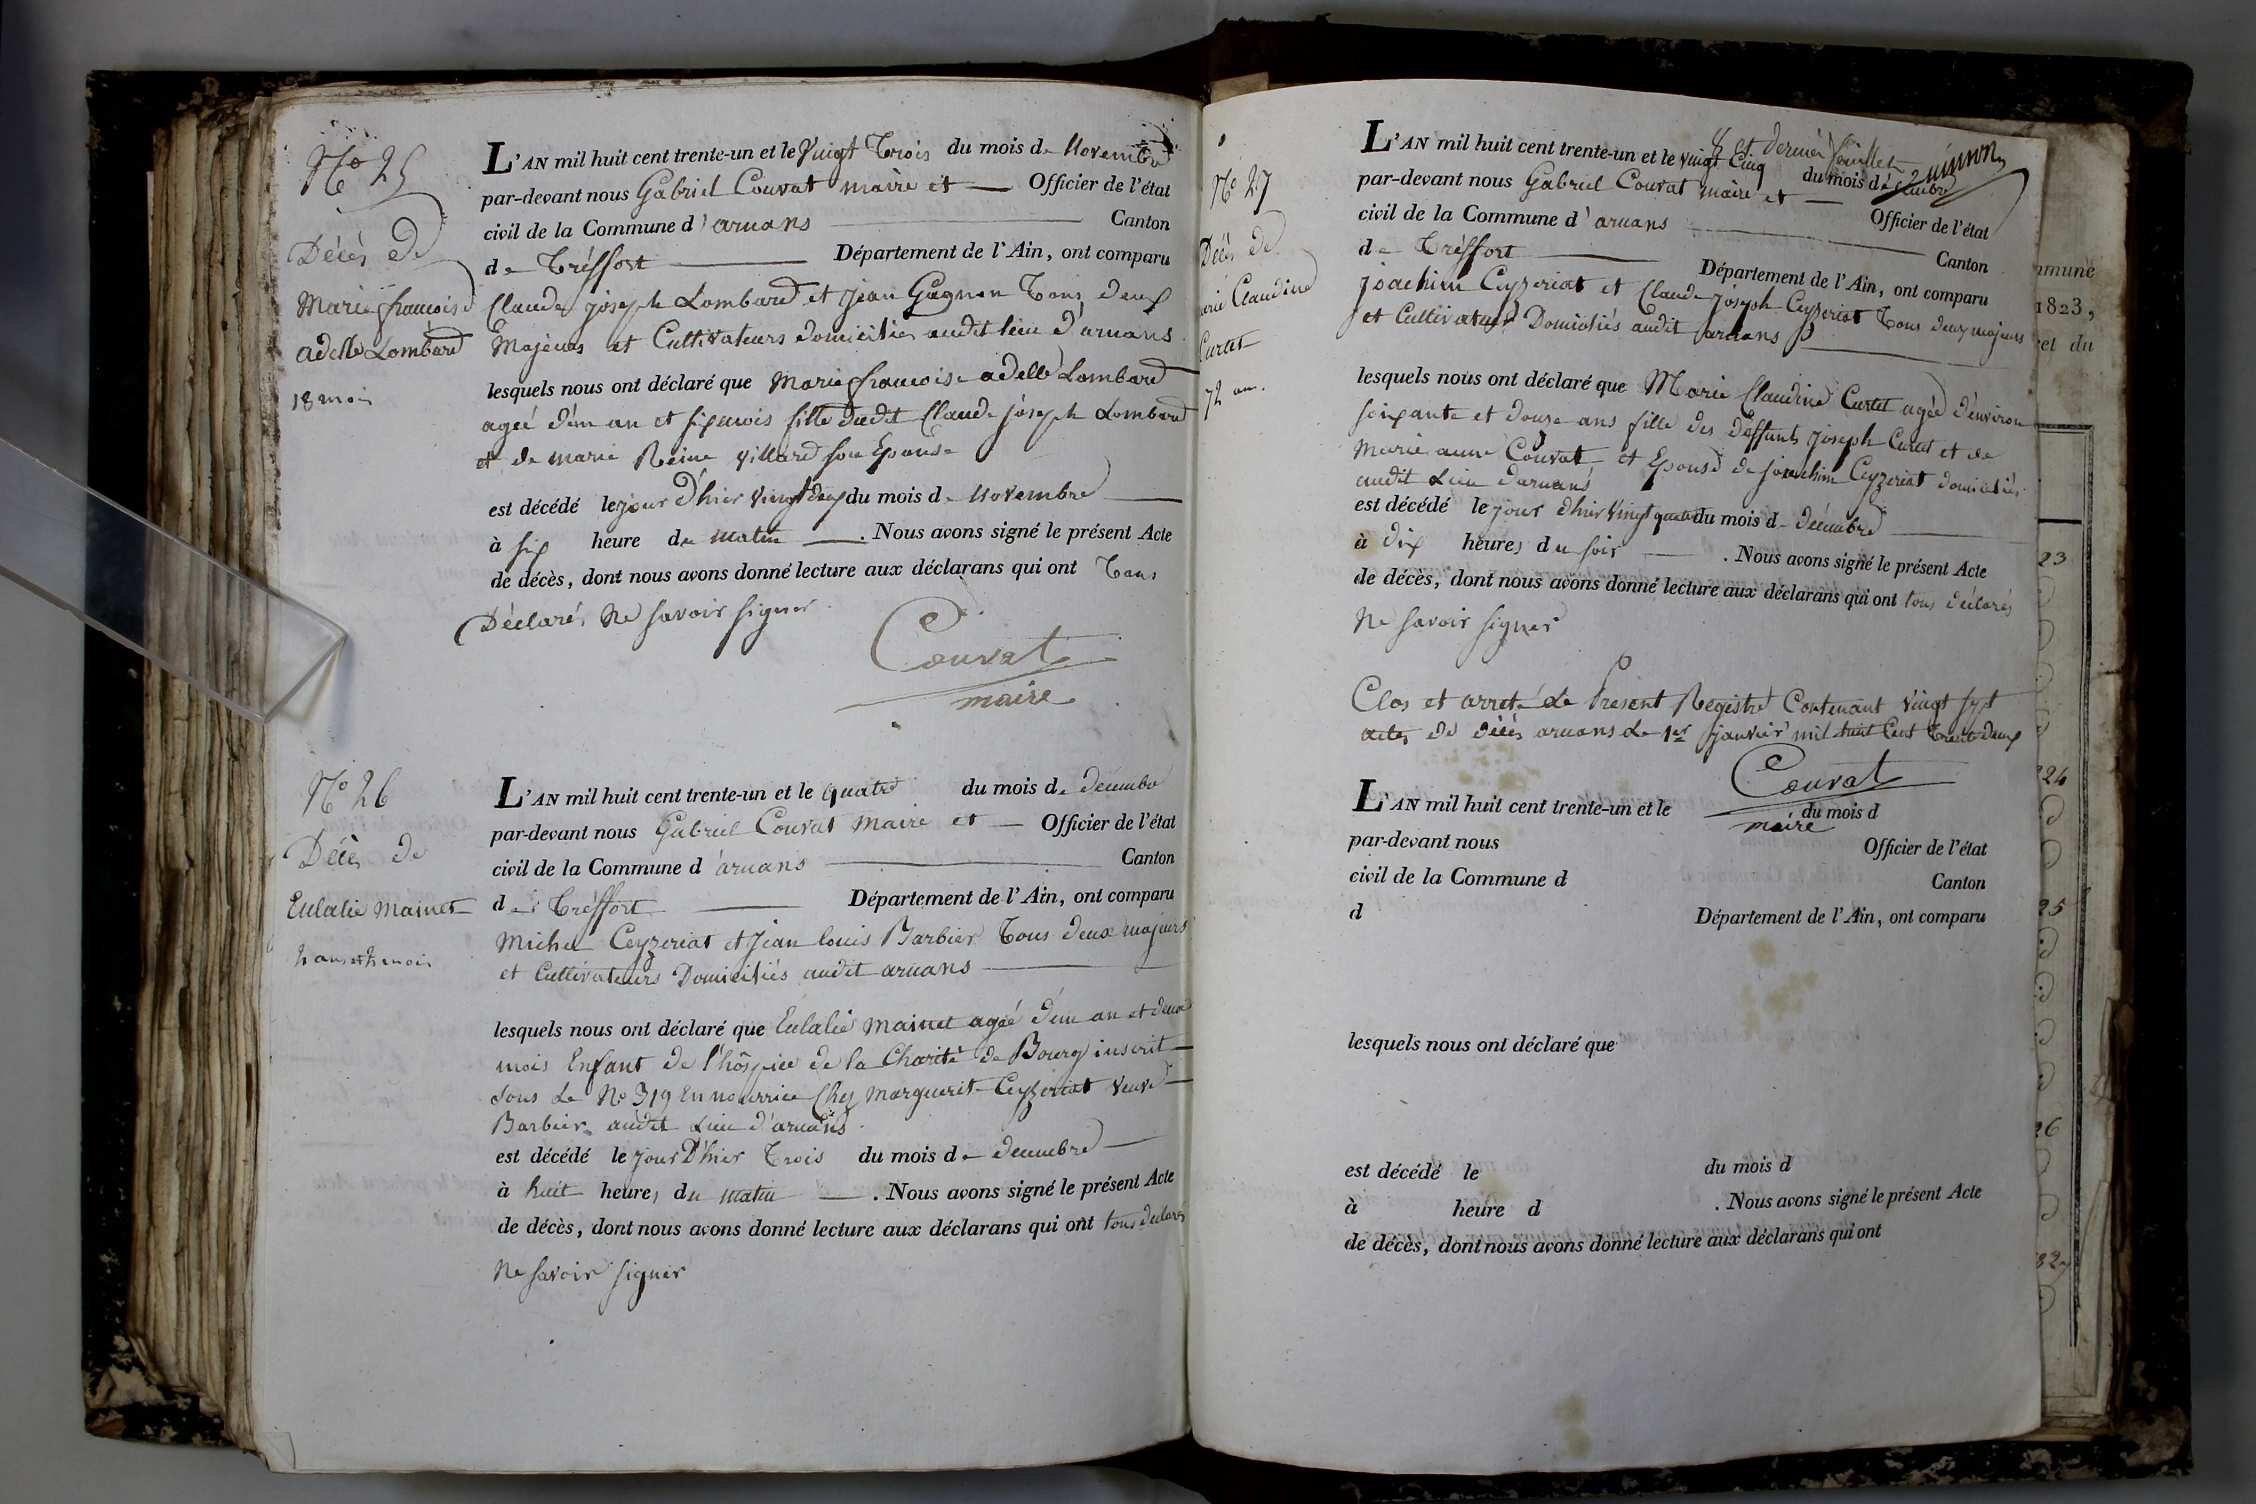 N° 25
Décès de
Marie françoise
adelle Lombard
18 mois
L'AN mil huit cent trente-un et le Vingt Trois du mois de Novembre
par-devant nous Gabriel Couvat maire et Officier de l'état
civil de la Commune d'arnans Canton
de Tréffort Département de l'Ain, ont comparu
Claude joseph Lombard et Jean Gagnon Tous deux
Majeurs et Cultivateurs domiciliés audit lieu d'arnans
lesquels nous ont déclaré que Marie françoise adelle Lombard
agée d'un an et six mois fille dudit Claude joseph Lombard
et de marie Reine Villard son Epouse
est décédé le jour d'hier vingt deux du mois de Novembre
à six heure du matin . Nous avons signé le présent Acte
de décès, dont nous avons donné lecture aux déclarans qui ont Tous
Déclarés Ne Savoir Signer
Couvat
maire
N° 26
Décès de
Eulalie Mainet
L'AN mil huit cent trente-un et le quatre du mois de decembre
par-devant nous Gabriel Couvat Maire et Officier de l'état
civil de la Commune d'arnans Canton
de Tréffort Département de l'Ain, ont comparu
Michel Ceyzeriat et Jean louis Barbier Tous deux majeurs
et Cultivateurs Domiciliés audit arnans
lesquels nous ont déclaré que Eulalie Mainet agée d'un an et deux
mois Enfant de l'hôspice de la Charité de Bourg inscrit
sous Le N° 319 En nourrice Chez Marguerite Ceyzeriat veuve
Barbier audit Lieu d'arnans
est décédé le jour D'hier Trois du mois de decembre
à huit heures du matin . Nous avons signé le présent Acte
de décès, dont nous avons donné lecture aux déclarans qui ont tous déclarés
Ne Savoir Signer
8 et dernier feuillet
N° 27
Décès de
arie Claudine
Curtet
72 ans.
L'AN mil huit cent trente-un et le vingt Cinq du mois de decembre
par-devant nous Gabriel Couvat maire et Officier de l'état
civil de la Commune d'arnans Canton
de Tréffort Département de l'Ain, ont comparu
Joachim Ceyzeriat et Claude Joseph Ceyzeriat Tous deux majeurs
et Cultivateurs Domiciliés audit arnans
lesquels nous ont déclaré que Marie Claudine Curtet agée d'environ
soixante et douze ans fille des deffunts Joseph Curtet et de
Marie anne Couvat et Epouse de joachim Ceyzeriat domiciliés
audit Lieu d'arnans
est décédé le jour d'hier Vingt quatre du mois de décembre
à dix heures du soir . Nous avons signé le présent Acte
de décès, dont nous avons donné lecture aux déclarans qui ont tous déclarés
Ne Savoir Signer
Clos et arreté Le Présent Régistre Contenant Vingt sept
actes de décès arnans Le 1er Janvier mil huit Cent Trente deux
Couvat
maire
L'AN mil huit cent trente-un et le du mois d
par-devant nous Officier de l'état
civil de la Commune d Canton
d Département de l'Ain, ont comparu
lesquels nous ont déclaré que
est décédé le du mois d
à heure d . Nous avons signé le présent Acte
de décès, dont nous avons donné lecture aux déclarans qui ont
mmune
1823,
et du
23
24
25
26